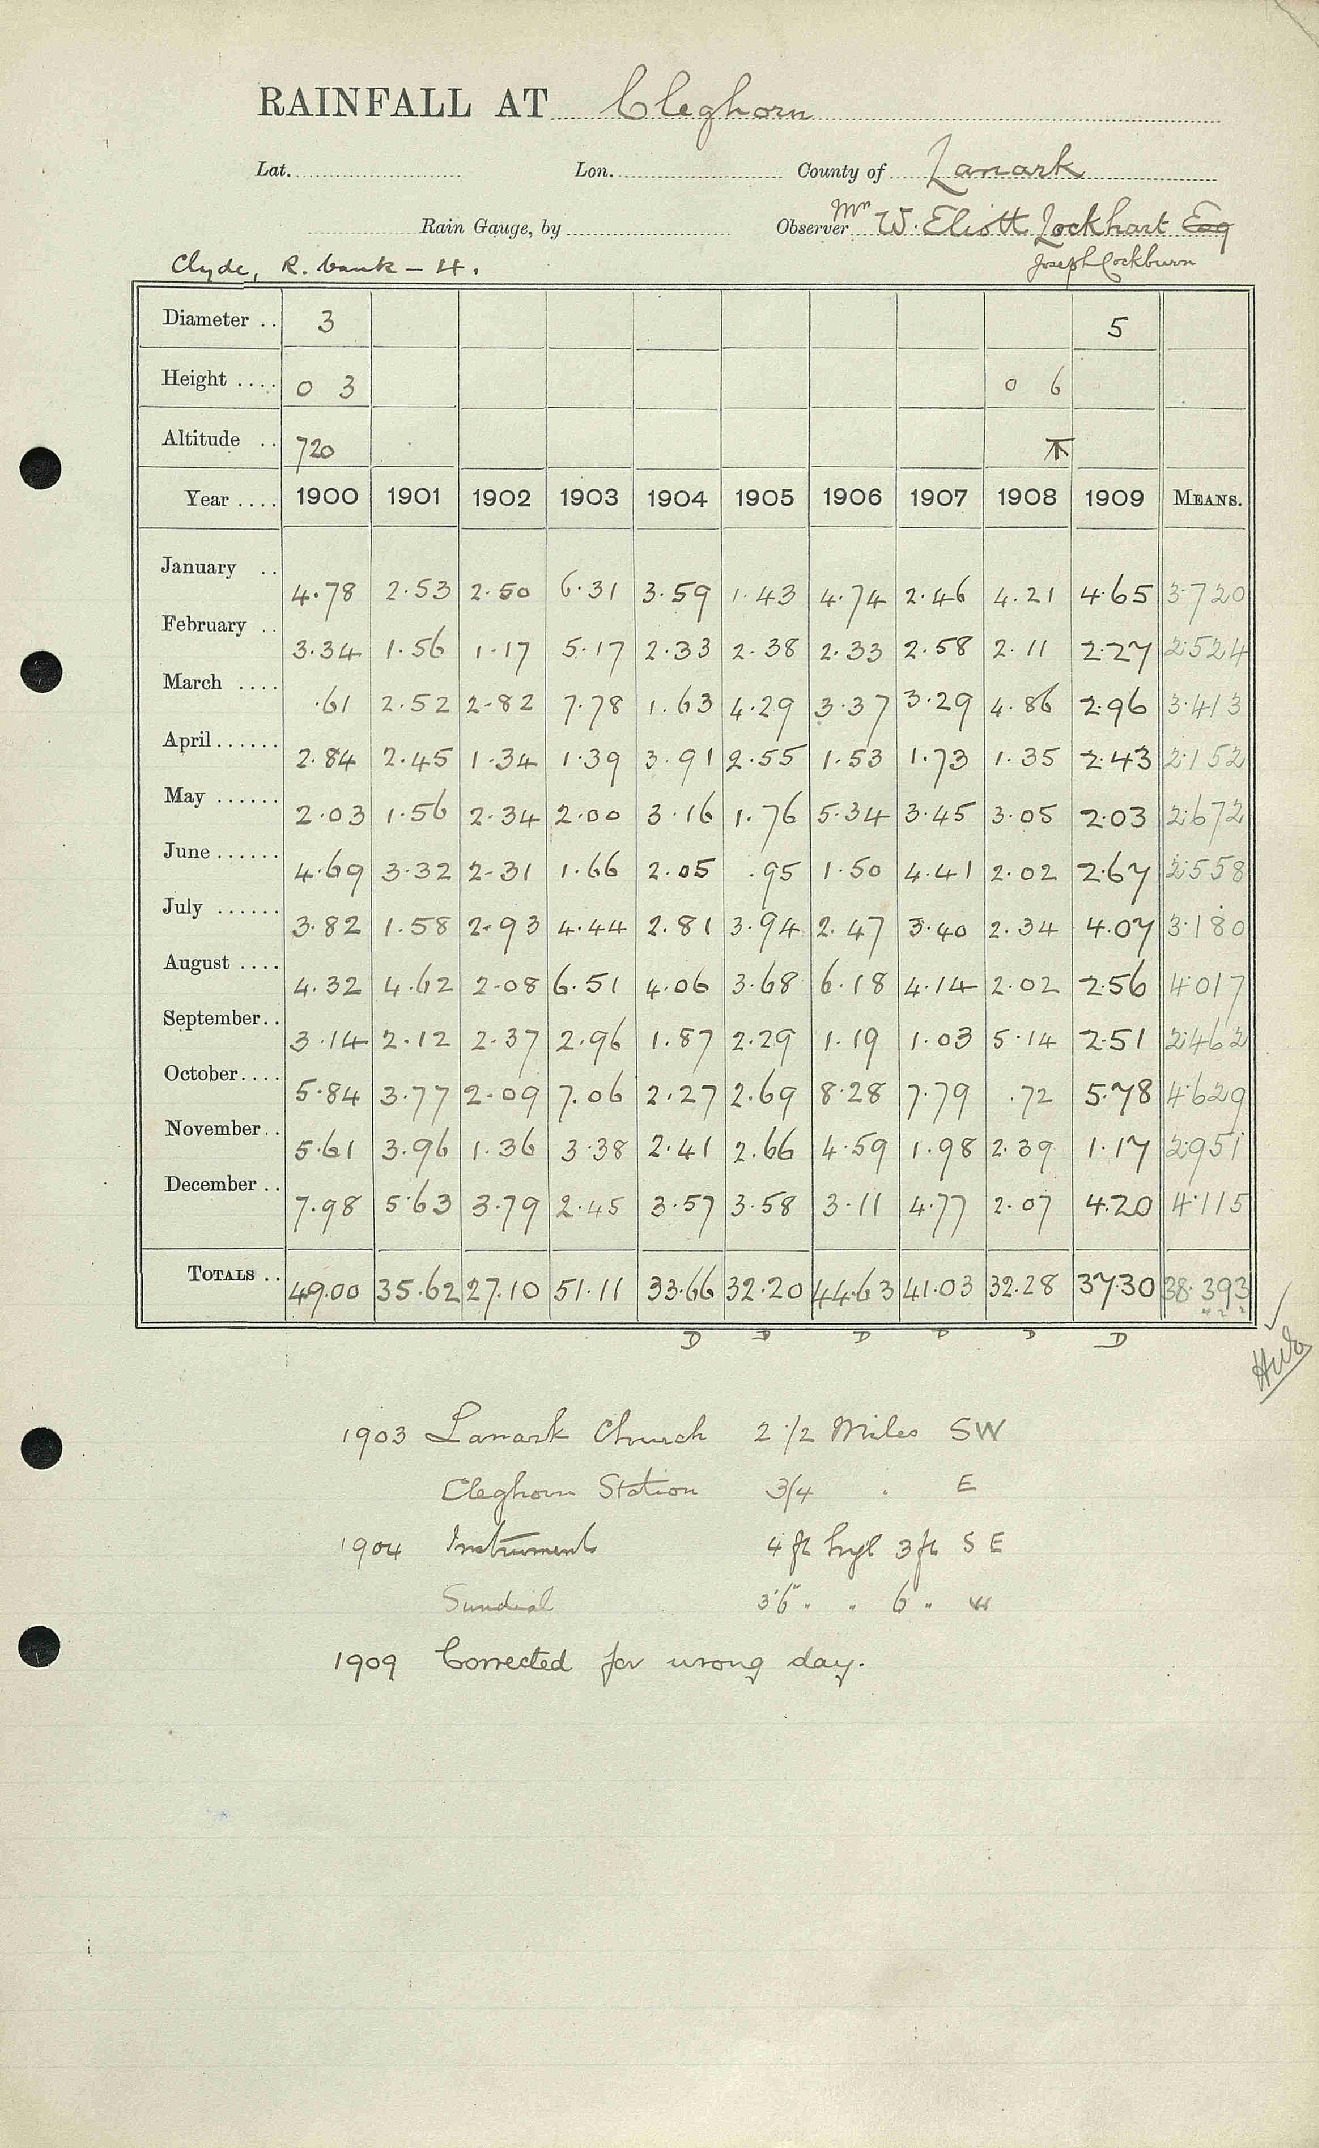 RAINFALL AT Cleghorn
Lat. Lon. County of Lanark
Rain Gauge, by Observer Mr W. Eliott Lockhart Esq
Joseph Cockburn
Clyde, R. bank - 4.
Diameter .. 3 5
Height .... 0 3 0 6
Altitude .. 720
Year .... 1900 1901 1902 1903 1904 1905 1906 1907 1908 1909 MEANS.
January .. 4.78 2.53 2.50 6.31 3.59 1.43 4.74 2.46 4.21 4.65 3.720
February .. 3.34 1.56 1.17 5.17 2.33 2.38 2.33 2.58 2.11 2.27 2.524
March .... .61 2.52 2.82 7.78 1.63 4.29 3.37 3.29 4.86 2.96 3.413
April ...... 2.84 2.45 1.34 1.39 3.91 2.55 1.53 1.73 1.35 2.43 2.152
May ...... 2.03 1.56 2.34 2.00 3.16 1.76 5.34 3.45 3.05 2.03 2.672
June ...... 4.69 3.32 2.31 1.66 2.05 .95 1.50 4.41 2.02 2.67 2.558
July ...... 3.82 1.58 2.93 4.44 2.81 3.94 2.47 3.40 2.34 4.07 3.180
August .... 4.32 4.62 2.08 6.51 4.06 3.68 6.18 4.14 2.02 2.56 4.017
September .. 3.14 2.12 2.37 2.96 1.87 2.29 1.19 1.03 5.14 2.51 2.462
October .... 5.84 3.77 2.09 7.06 2.27 2.69 8.28 7.79 .72 5.78 4.629
November .. 5.61 3.96 1.36 3.38 2.41 2.66 4.59 1.98 2.39 1.17 2.951
December .. 7.98 5.63 3.79 2.45 3.57 3.58 3.11 4.77 2.07 4.20 4.115
TOTALS .. 49.00 35.62 27.10 51.11 33.66 32.20 44.63 41.03 32.28 37.30 38.393
D D D D D D
1903 Lanark Church 2 1/2 Miles SW
Cleghorn Station 3/4 " E
1904 Instruments 4 ft high 3 ft S E
Sundial 3'6" " " 6 " W
1909 Corrected for wrong day.